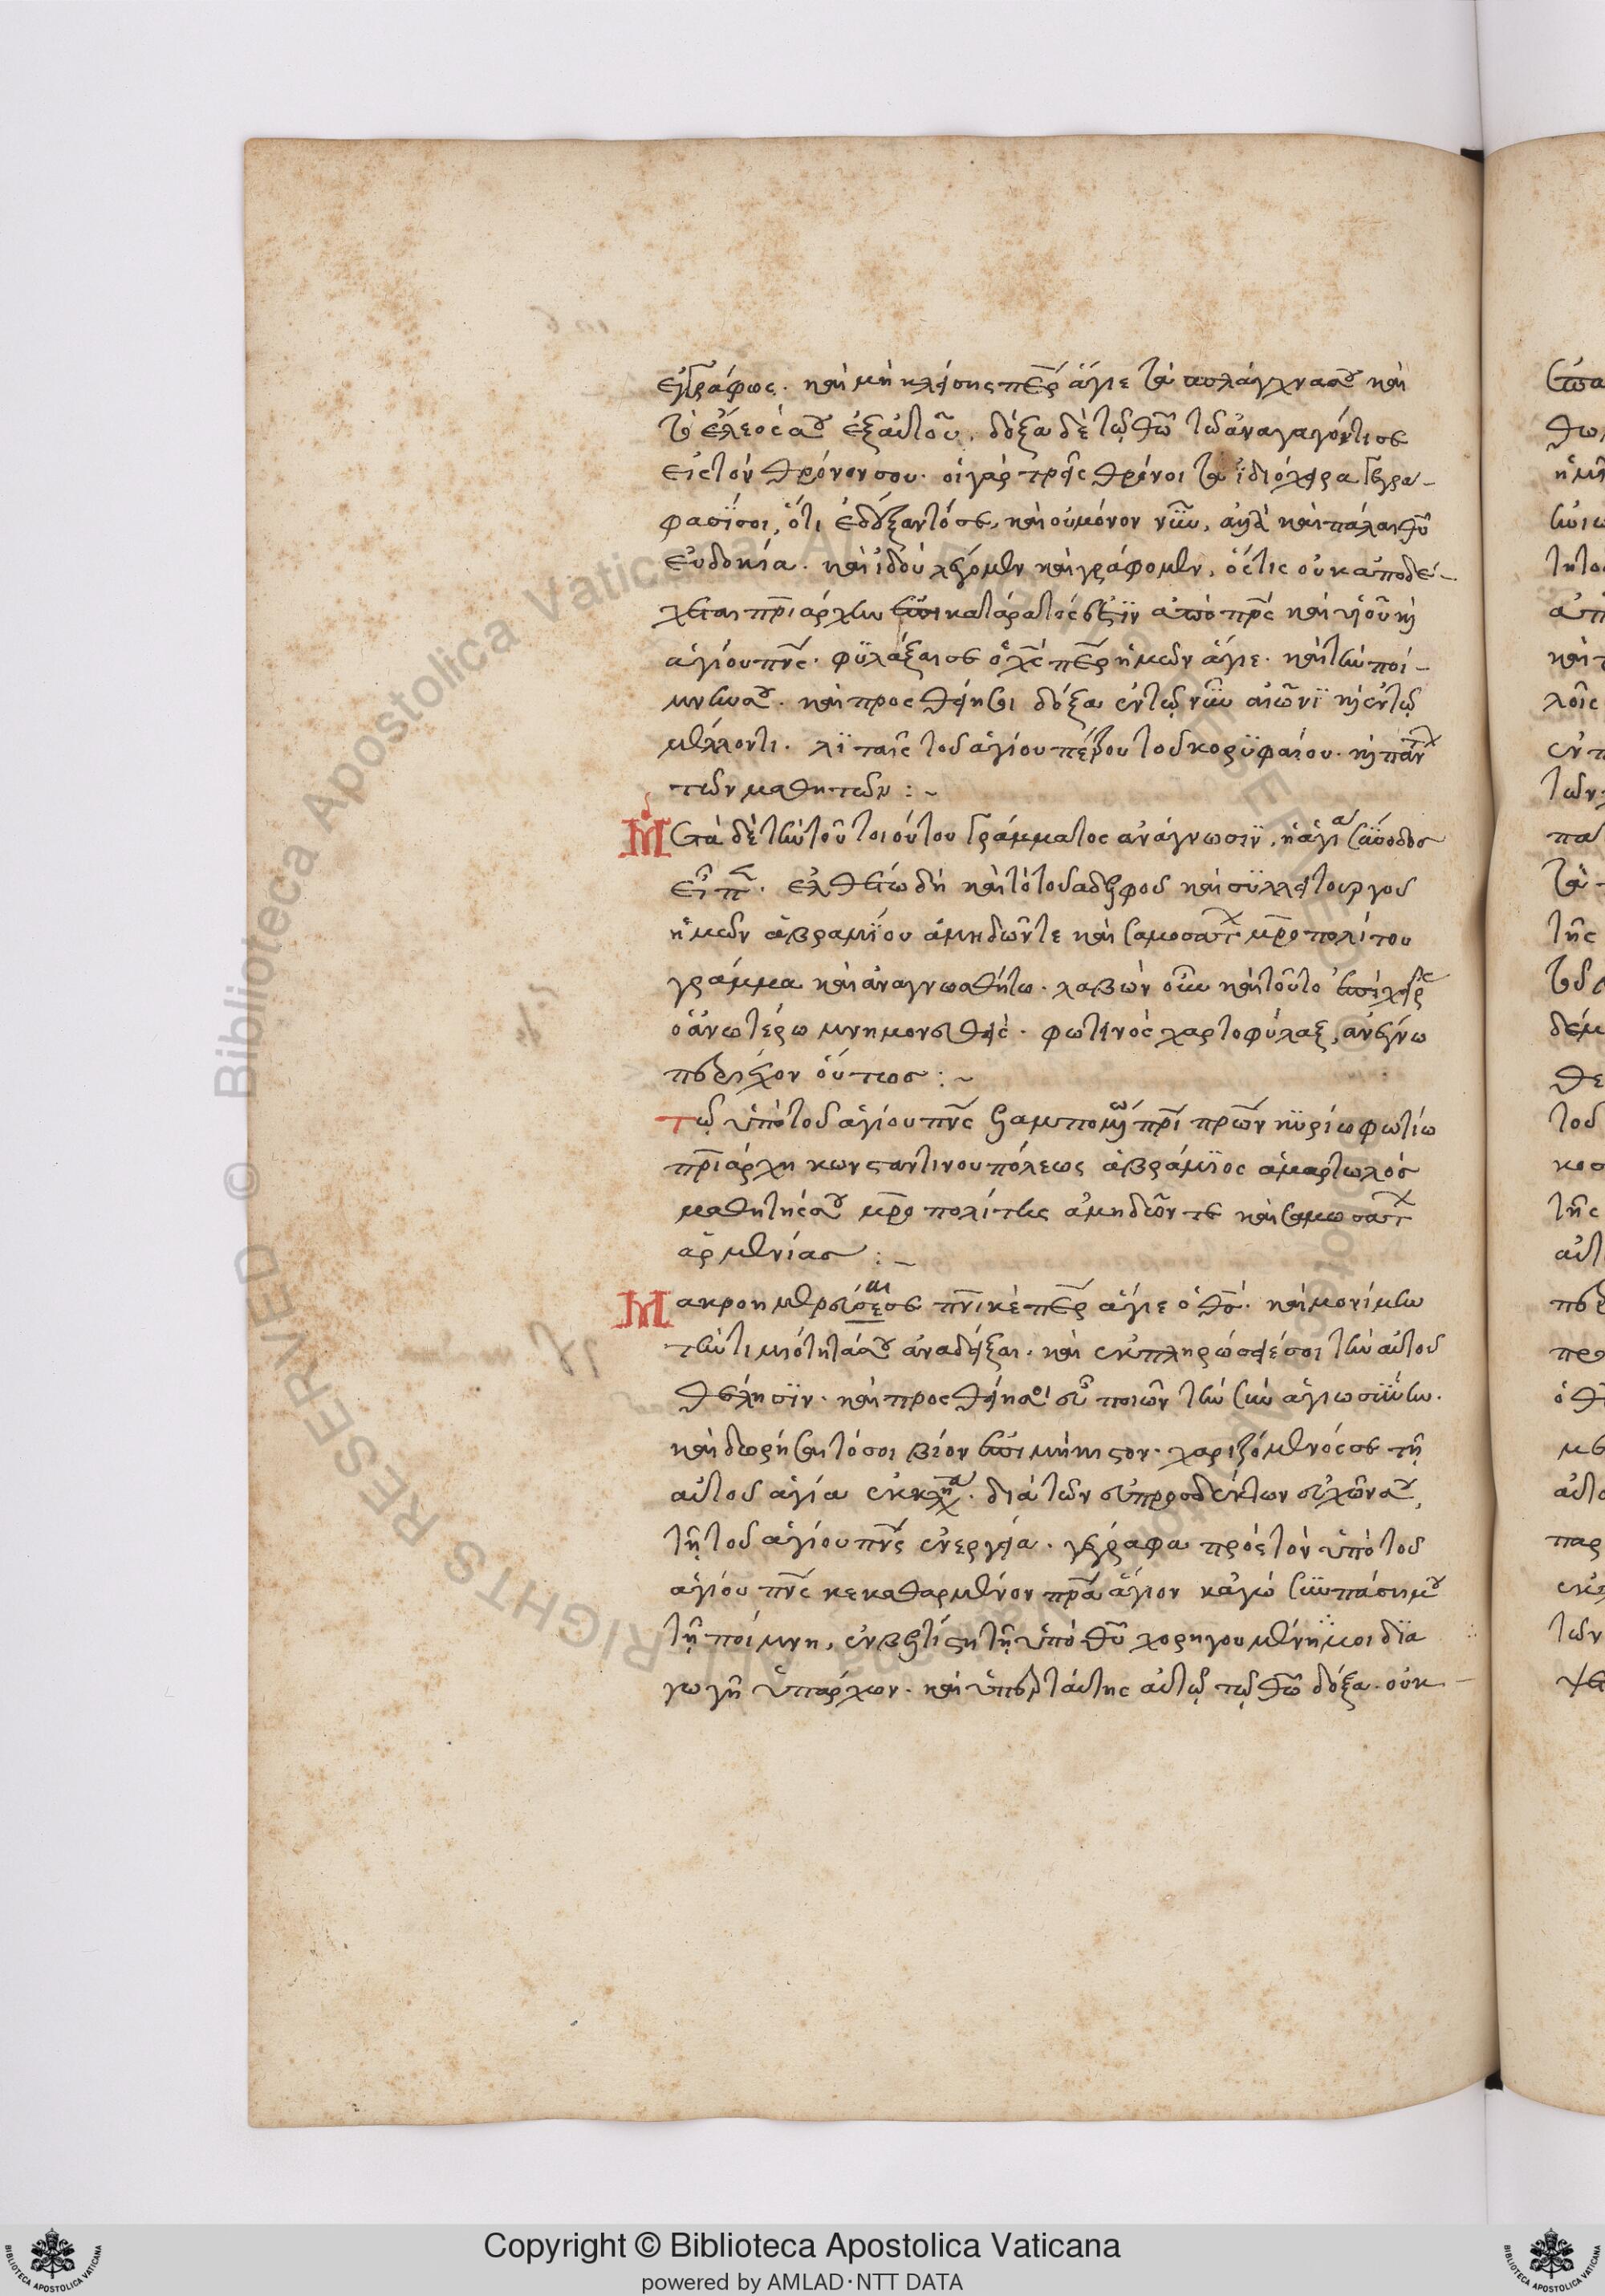 ἐγγράφως. καὶ μὴ κλείσης πε̅ρ ἅγιε τὰ σπλάγχνα σου καὶ
τὸ ἔλεός σου ἐξ αὐτοῦ. δόξα δὲ τῷ θω̅ τῶ ἀναγαγόντι σε
εἰς τὸν θρόνον σου. οἱ γὰρ τρεῖς θρόνοι τὰ ϊδιόχειρα γεγρα-
φασΐ σοι, ὅτι ἐδέξαντό σε, καὶ οὐ μόνον νῦν, ἀλλὰ καὶ πάλαι θυ̅
εὐδοκία. καὶ ἰδοὺ λέγομεν καὶ γράφομεν, ὅστις οὐκ ἀποδέ-
χεται πρ̅ιάρχην ἐπικατάρατός ἐστϊν ἀπὸ πρ̅ς καὶ υἱοῦ καὶ
ἁγίου πν̅ς. φϋλάξαι σε ὁ χς̅ πε̅ρ ἡμῶν ἅγιε. καὶ τὴν ποί-
μνην σου. καὶ προσθείη σοι δόξα ἐν τῷ νῦν αἰῶνϊ καὶ ἐν τῷ
μέλλοντι. λϊταῖς τοῦ ἁγίου πέτρου τοῦ κορϋφαίου. καὶ πάντ
τῶν μαθητῶν :~
Μετὰ δὲ τὴν τοῦ τοιούτου γράμματος ἀνάγνωσϊν, ἡ ἁγία σύνοδος
εἶπ. ἐλθέτω δὴ καὶ τὸ τοῦ ἀδελφοῦ καὶ σϋλλειτουργοῦ
ἡμῶν ἀβραμΐου ἀμηδῶν τε καὶ σαμοσατ μρ̅οπολίτου
γράμμα καὶ ἀναγνωσθήτω. λαβὼν οὖν καὶ τοῦτο ἐπὶ χεῖρς
ὁ ἀνωτέρω μνημονευθείς. φωτεινὸς χαρτοφύλαξ, ἀνέγνω
περιέχον οὕτως :~
Τῷ ὑπὸ τοῦ ἁγίου πν̅ς λαμπομένω πρ̅ι πρω̅ν κϋρίω φωτίω
πρ̅ιάρχη κωνσταντινουπόλεως ἀβράμϊος ἁμαρτωλὸς
μαθητής σου μρ̅οπολίτης ἀμηδῶν τε καὶ σαμωσατ
ἀρμενίας :~
Μακροημερεύσαι σε πν̅ικὲ πε̅ρ ἅγιε ὁ θς̅. καὶ μονίμην
τὴν τιμιότητά σου ἀναδείξαι. καὶ ἐκπληρώσειέ σοι τὴν αὐτοῦ
θέλησϊν. καὶ προσθείη σοι εὖ ποιῶν τὴν σὴν ἁγιωσϋνην.
καὶ δωρήσαιτό σοι βίον ἐπὶ μήκιστον. χαριζόμενός σε τῇ
αὐτοῦ ἁγία ἐκκλησία. διὰ τῶν εὐπροσδέκτων εὐχῶν σου,
τῇ τοῦ ἁγίου πν̅ς ἐνεργεία. γέγραφα πρὸς τὸν ὑπὸ τοῦ
ἁγίου πν̅ς κεκαθαρμένον πρ̅α ἅγιον κἀγὼ σὺν πάσῃ μου
τῇ ποίμνη, ἐν βελτίστη τῇ ὑπὸ θυ̅ χορηγουμένη μοι δϊα
γωγῆ ὑπάρχων. καὶ ὑπὲρ ταύτης αὐτῷ τῷ θω̅ δόξα. οὐκ